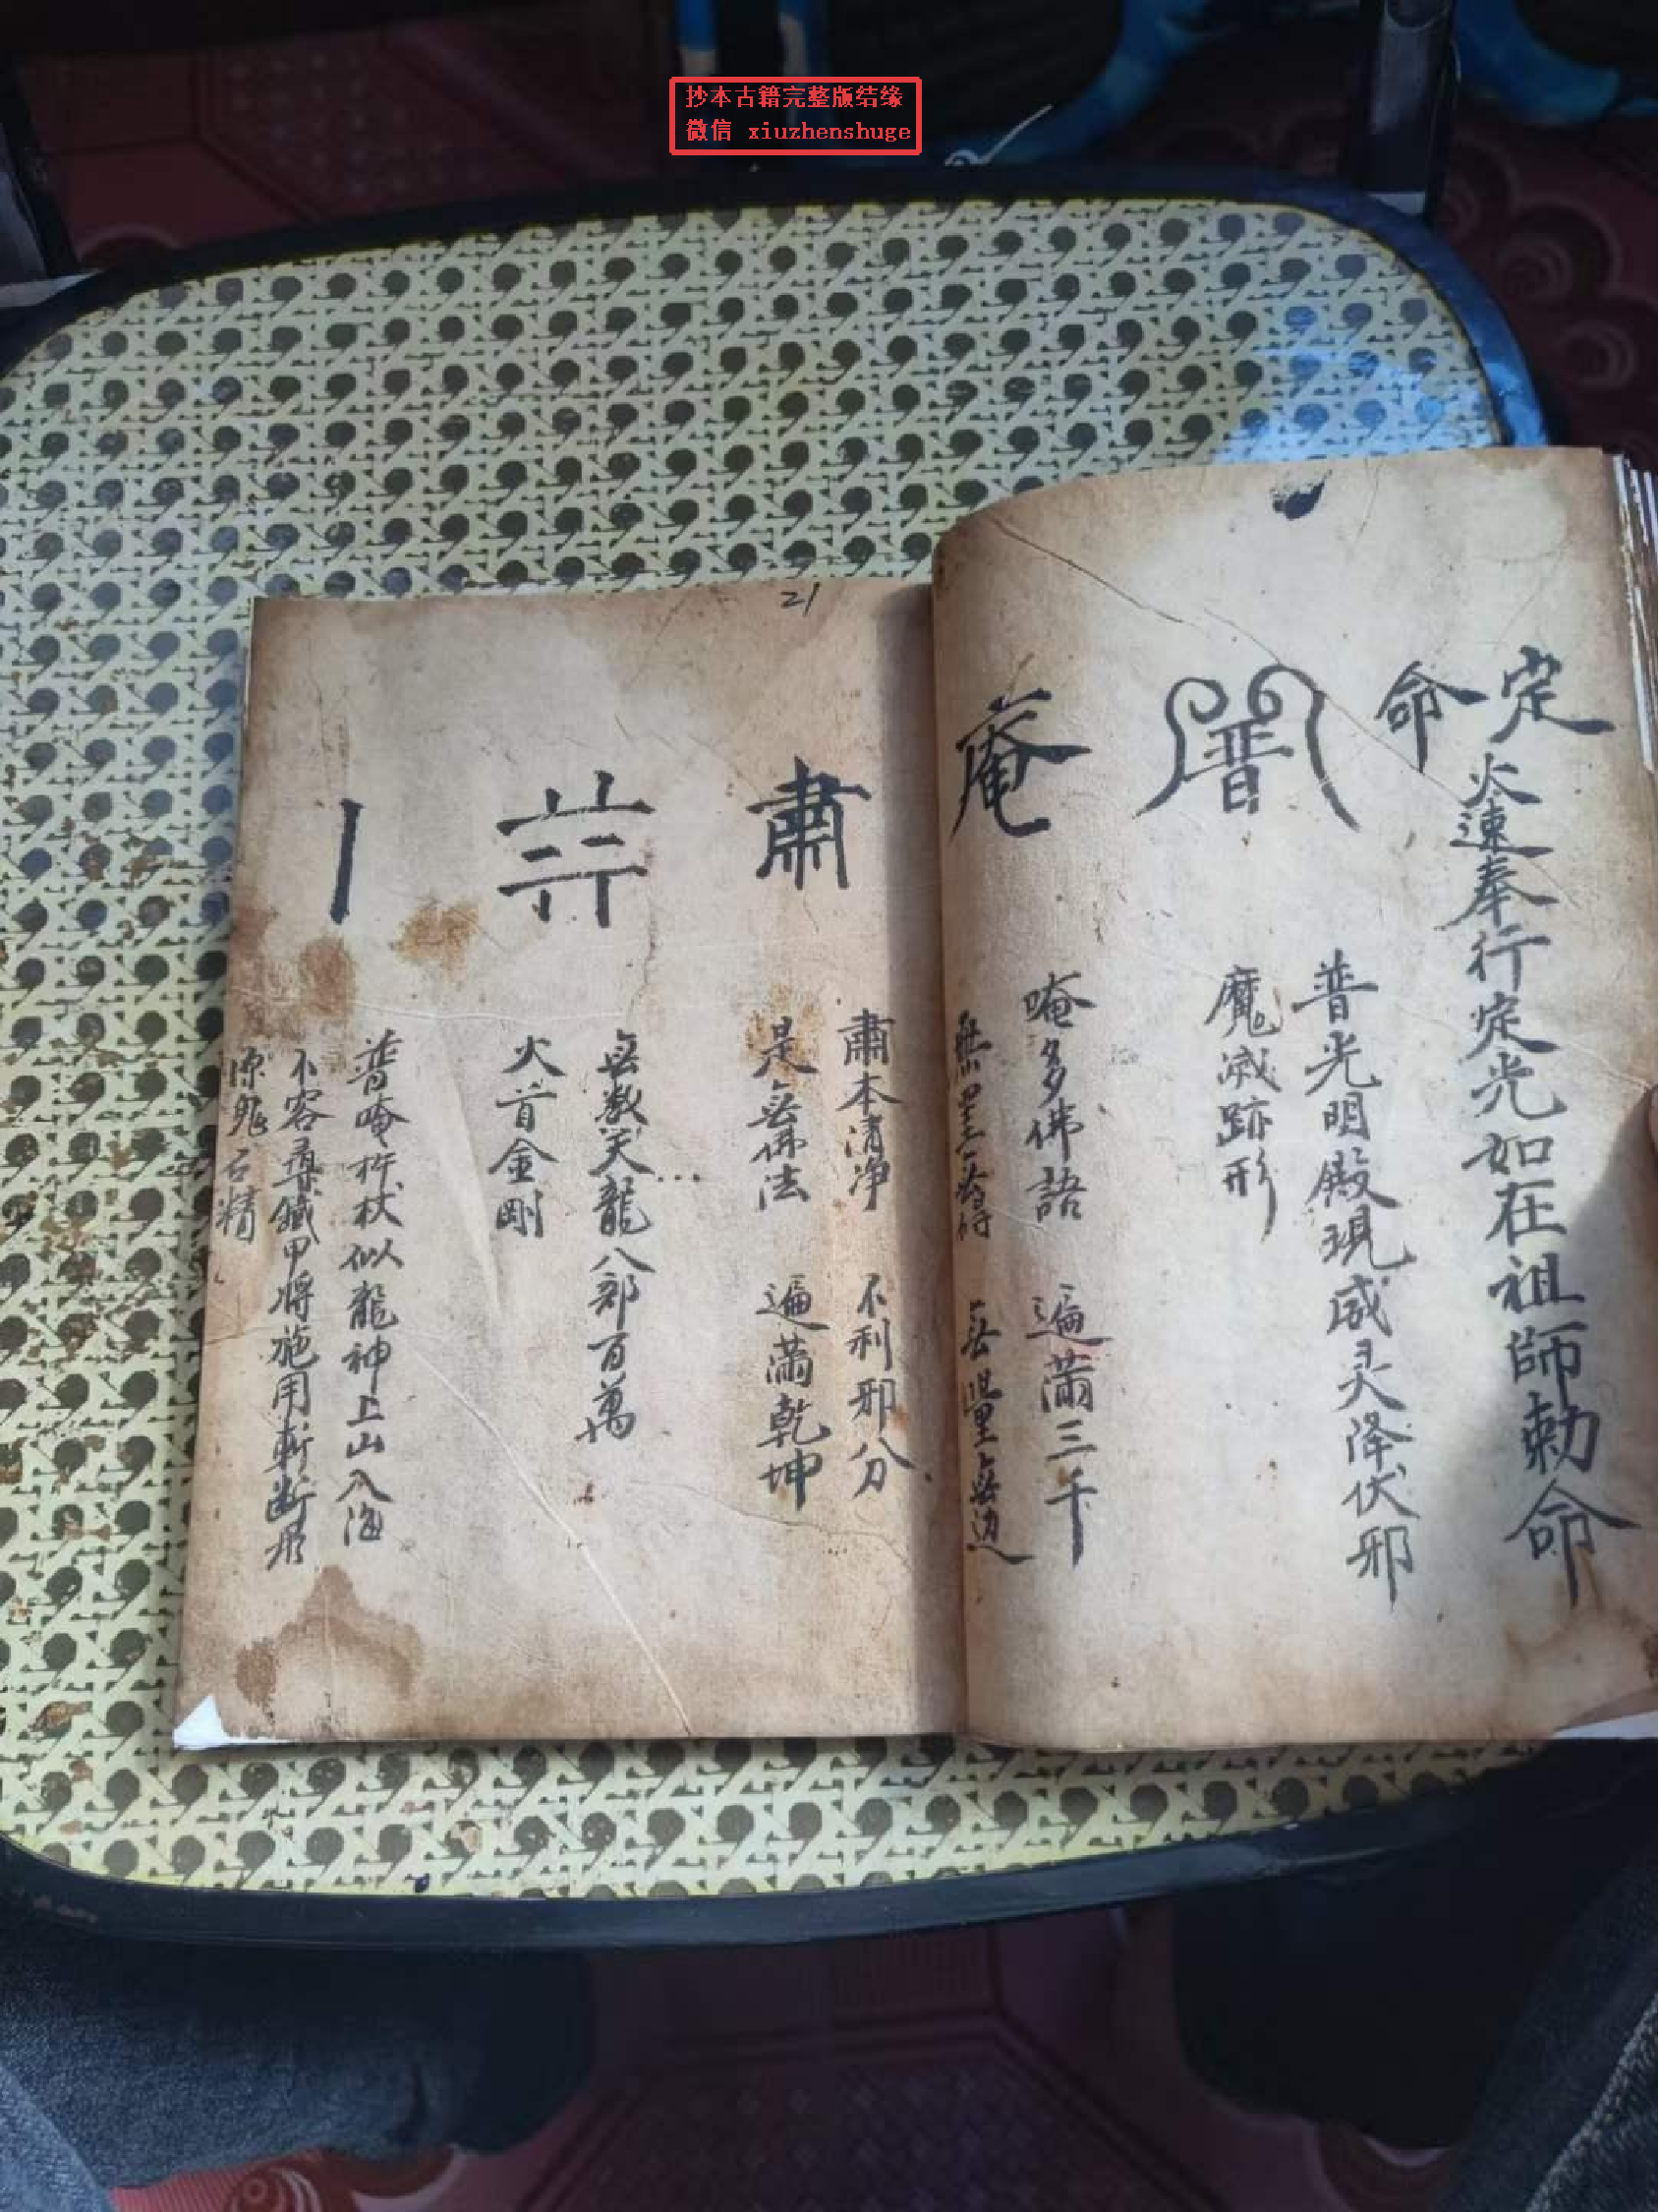 抄本古籍完整版结缘
微信 xiuzhenshuge
定
火速奉行定光如在祖師勅命
命
普
普光明殿現威灵降伏邪
魔滅跡形
庵
唵多佛語 遍滿三千
無邊
肅
肅本清净 不利邪分
是無佛法 遍滿乾坤
21
無数天龍八部百萬
火首金剛
普唵柱杖似龍神上山入海
不容尋鐵甲將施用斬断
鬼石精